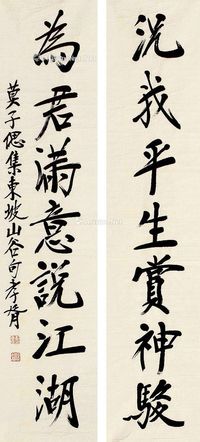 况我平生賞神駿
為君滿意說江湖
莫子偲集東坡山谷句孝胥